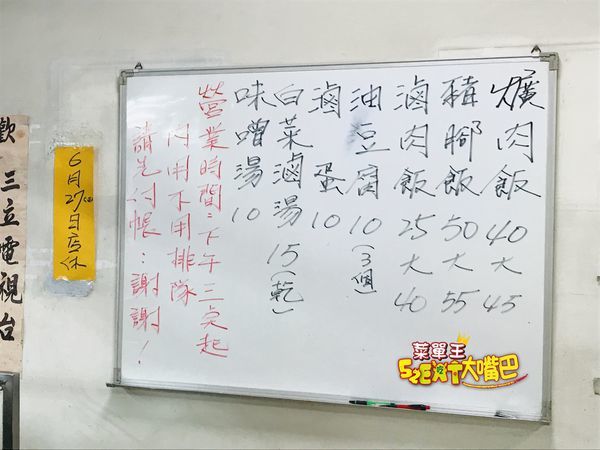 爌肉飯 40 大 45
豬腳飯 50 大 55
滷肉飯 25 大 40
油豆腐 10(3個)
滷蛋 10
白菜滷湯 15(乾)
味噌湯 10
營業時間:下午三点起
內用不用排隊
請先付帳:謝謝!
6月27日店休
歡
三立電視台
菜單王
53EXT大嘴巴